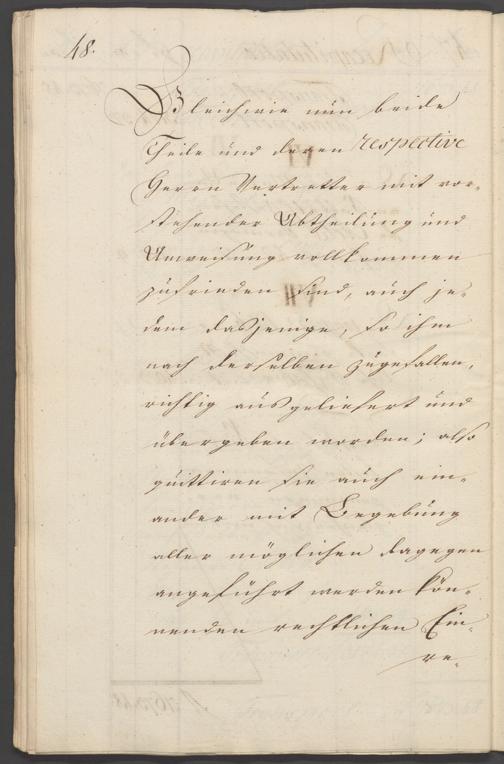 48.
Gleichwie nun beide
Theile und deren respective
Herrn Vertretter mit vor-
stehender Abtheilung und
Anweisung vollkommen
zufrieden sind, auch je-
dem dasjenige, so ihm
nach derselben zugefallen,
richtig ausgeliefert und
übergeben worden; also
quittiren sie auch ein-
ander mit Begebung
aller möglichen dagegen
angeführt werden kön-
nenden rechtlichen Ein-
re-